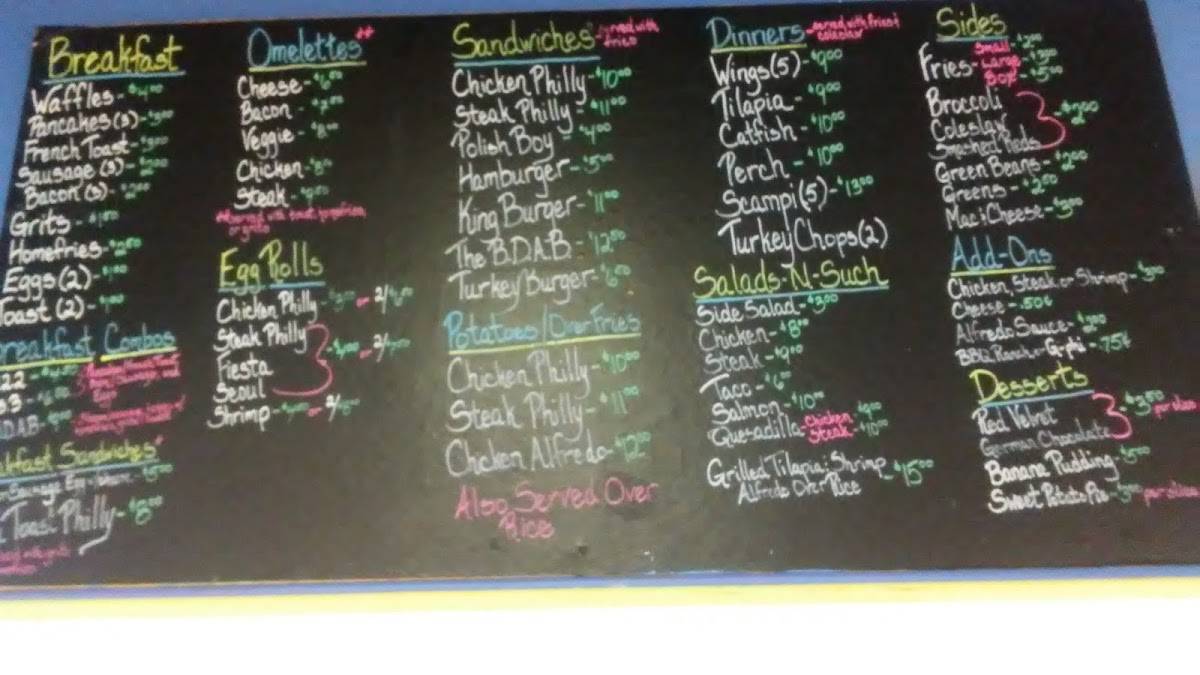 Breakfast
Waffles - $4.00
Pancakes (3) - $3.00
French Toast - $3.00
Sausage (3) - $2.00
Bacon (3) - $2.00
Grits -
Homefries - $2.50
Eggs (2) -
Toast (2) -
Breakfast Combos
Sandwiches*
Toast Philly - $8.00
Omelettes**
Cheese - $6.00
Bacon - $7.00
Veggie - $8.00
Chicken -
Steak -
**served with toast, homefries,
or grits
Egg Rolls
Chicken Philly - $3.00 or 2/$6.00
Steak Philly
Fiesta
Seoul
- $4.00 or 2/$7.00
Shrimp - or 2/
Sandwiches* served with
fries
Chicken Philly - $10.00
Steak Philly - $11.00
Polish Boy - $4.00
Hamburger - $5.00
King Burger - $11.00
The B.D.A.B. - $12.50
Turkey Burger - $6.50
Potatoes/Over Fries
Chicken Philly - $10.00
Steak Philly - $11.00
Chicken Alfredo - $12.00
Also Served Over
Rice
Dinners - served with fries &
coleslaw
Wings (5) - $9.00
Tilapia - $9.00
Catfish - $10.00
Perch - $10.00
Scampi (5) - $13.00
Turkey Chops (2)
Salads-N-Such
Side Salad - $3.00
Chicken - $8.00
Steak - $9.00
Taco - $6.00
Salmon - $10.00
Quesadilla - Chicken - $9.00
Steak - $10.00
Grilled Tilapia & Shrimp
Alfredo Over Rice - $15.00
Sides
Fries - Small - $2.00
Large - $3.00
Box - $5.00
Broccoli
Coleslaw
Smashed Reds
- $2.00
Green Beans - $2.00
Greens - $2.50
Mac & Cheese - $3.00
Add-Ons
Chicken Steak or Shrimp - $3.00
Cheese - .50¢
Alfredo Sauce -
BBQ Ranch or - .75¢
Desserts
Red Velvet
German Chocolate
- $3.50 per slice
Banana Pudding - $5.00
Sweet Potato Pie - $3.00 per slice